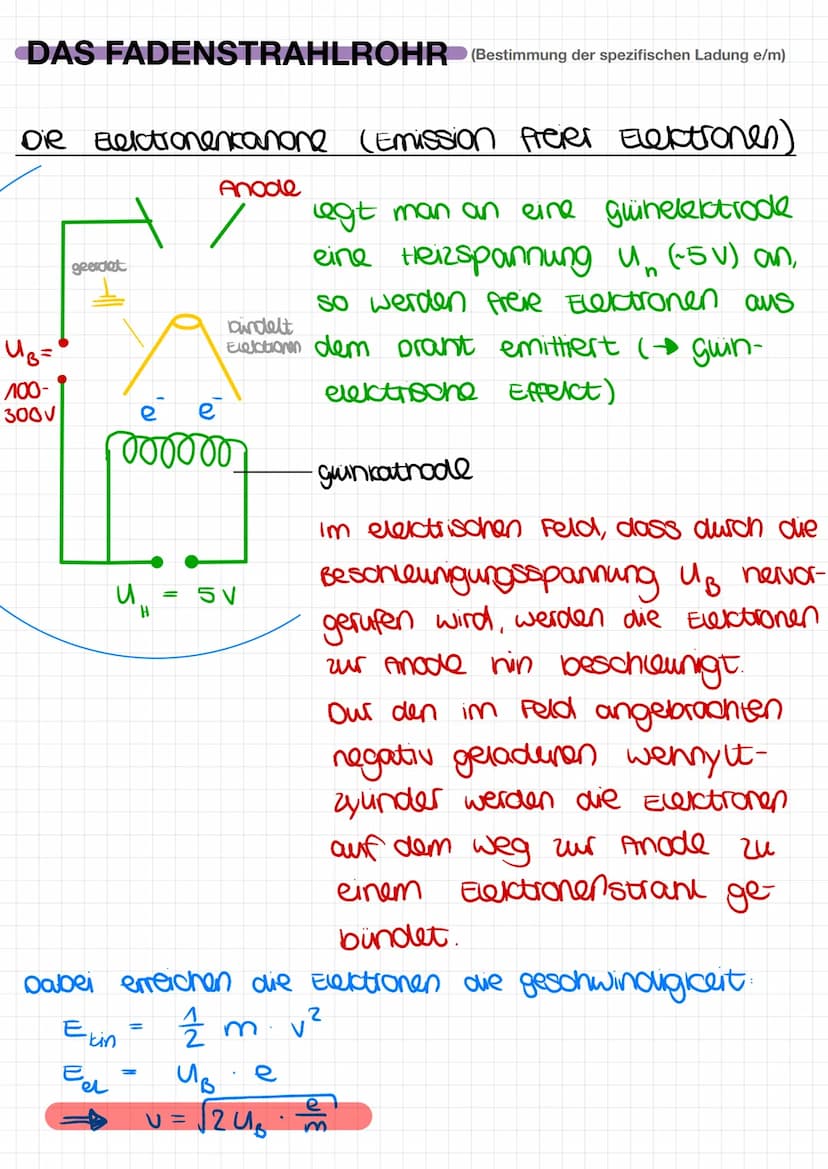 DAS FADENSTRAHLROHR (Bestimmung der spezifischen Ladung e/m)
Die Elektronenkanone (Emission freier Elektronen)
Anode
geerdet
bündelt
Elektronen
U_B =
100-
300V
e⁻ e⁻
U_H = 5V
Legt man an eine Glühelektrode
eine Heizspannung U_h (~5V) an,
so werden freie Elektronen aus
dem Draht emittiert (→ glüh-
elektrische Effekt)
Glühkathode
Im elektrischen Feld, dass durch die
Beschleunigungsspannung U_B hervor-
gerufen wird, werden die Elektronen
zur Anode hin beschleunigt.
Dur den im Feld angebrachten
negativ geladenen Wehnylt-
zylinder werden die Elektronen
auf dem Weg zur Anode zu
einem Elektronenstrahl ge-
bündet.
Dabei erreichen die Elektronen die Geschwindigkeit:
E_kin = 1/2 m · v²
E_el = U_B · e
⇒ v = √(2 U_B · e/m)